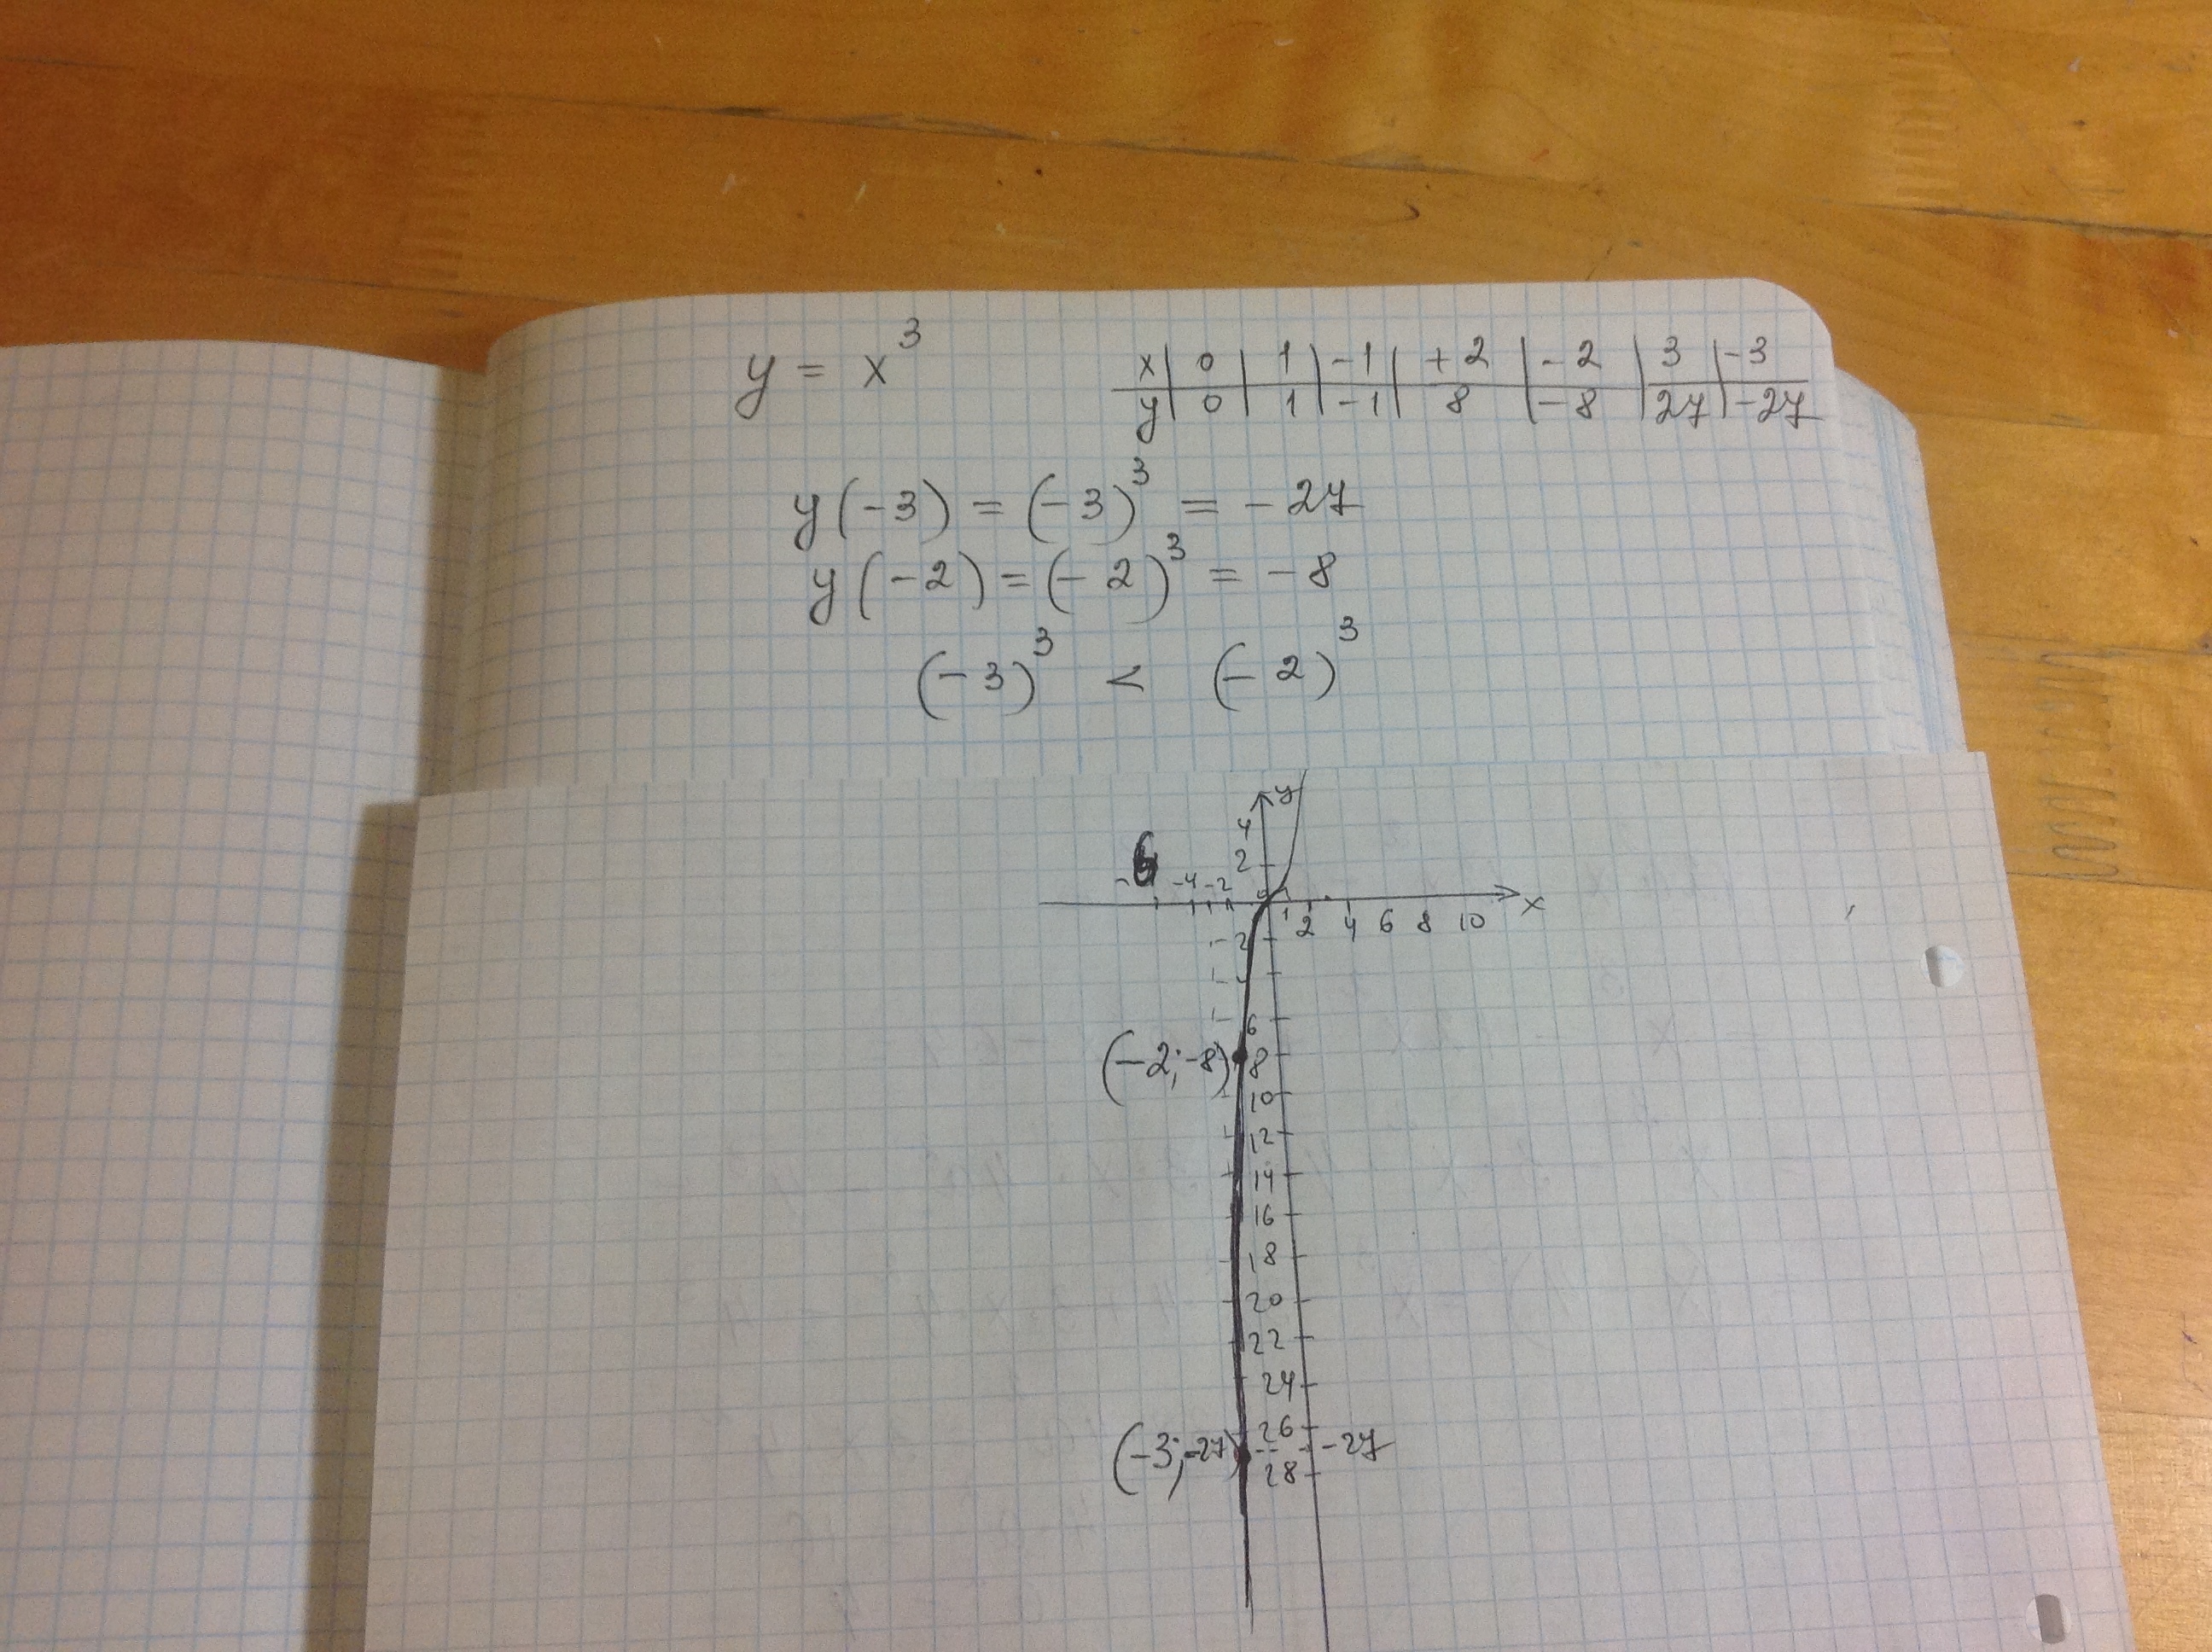 y = x³
x | 0 | 1 | -1 | +2 | -2 | 3 | -3
y | 0 | 1 | -1 | 8 | -8 | 27 | -27
y(-3) = (-3)³ = -27
y(-2) = (-2)³ = -8
(-3)³ < (-2)³
y
4
2
-6 -4 -2
1 2 4 6 8 10 x
-2
6
(-2; -8) 8
10
12
14
16
18
20
22
24
26
(-3; -27) -27
28